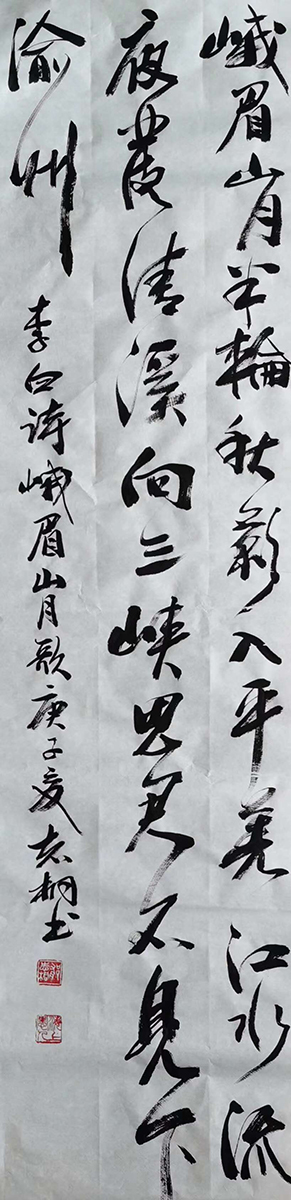 峨眉山月半輪秋影入平羌江水流
夜發清溪向三峽思君不見下
渝州
李白诗峨眉山月歌庚子夏志桐书